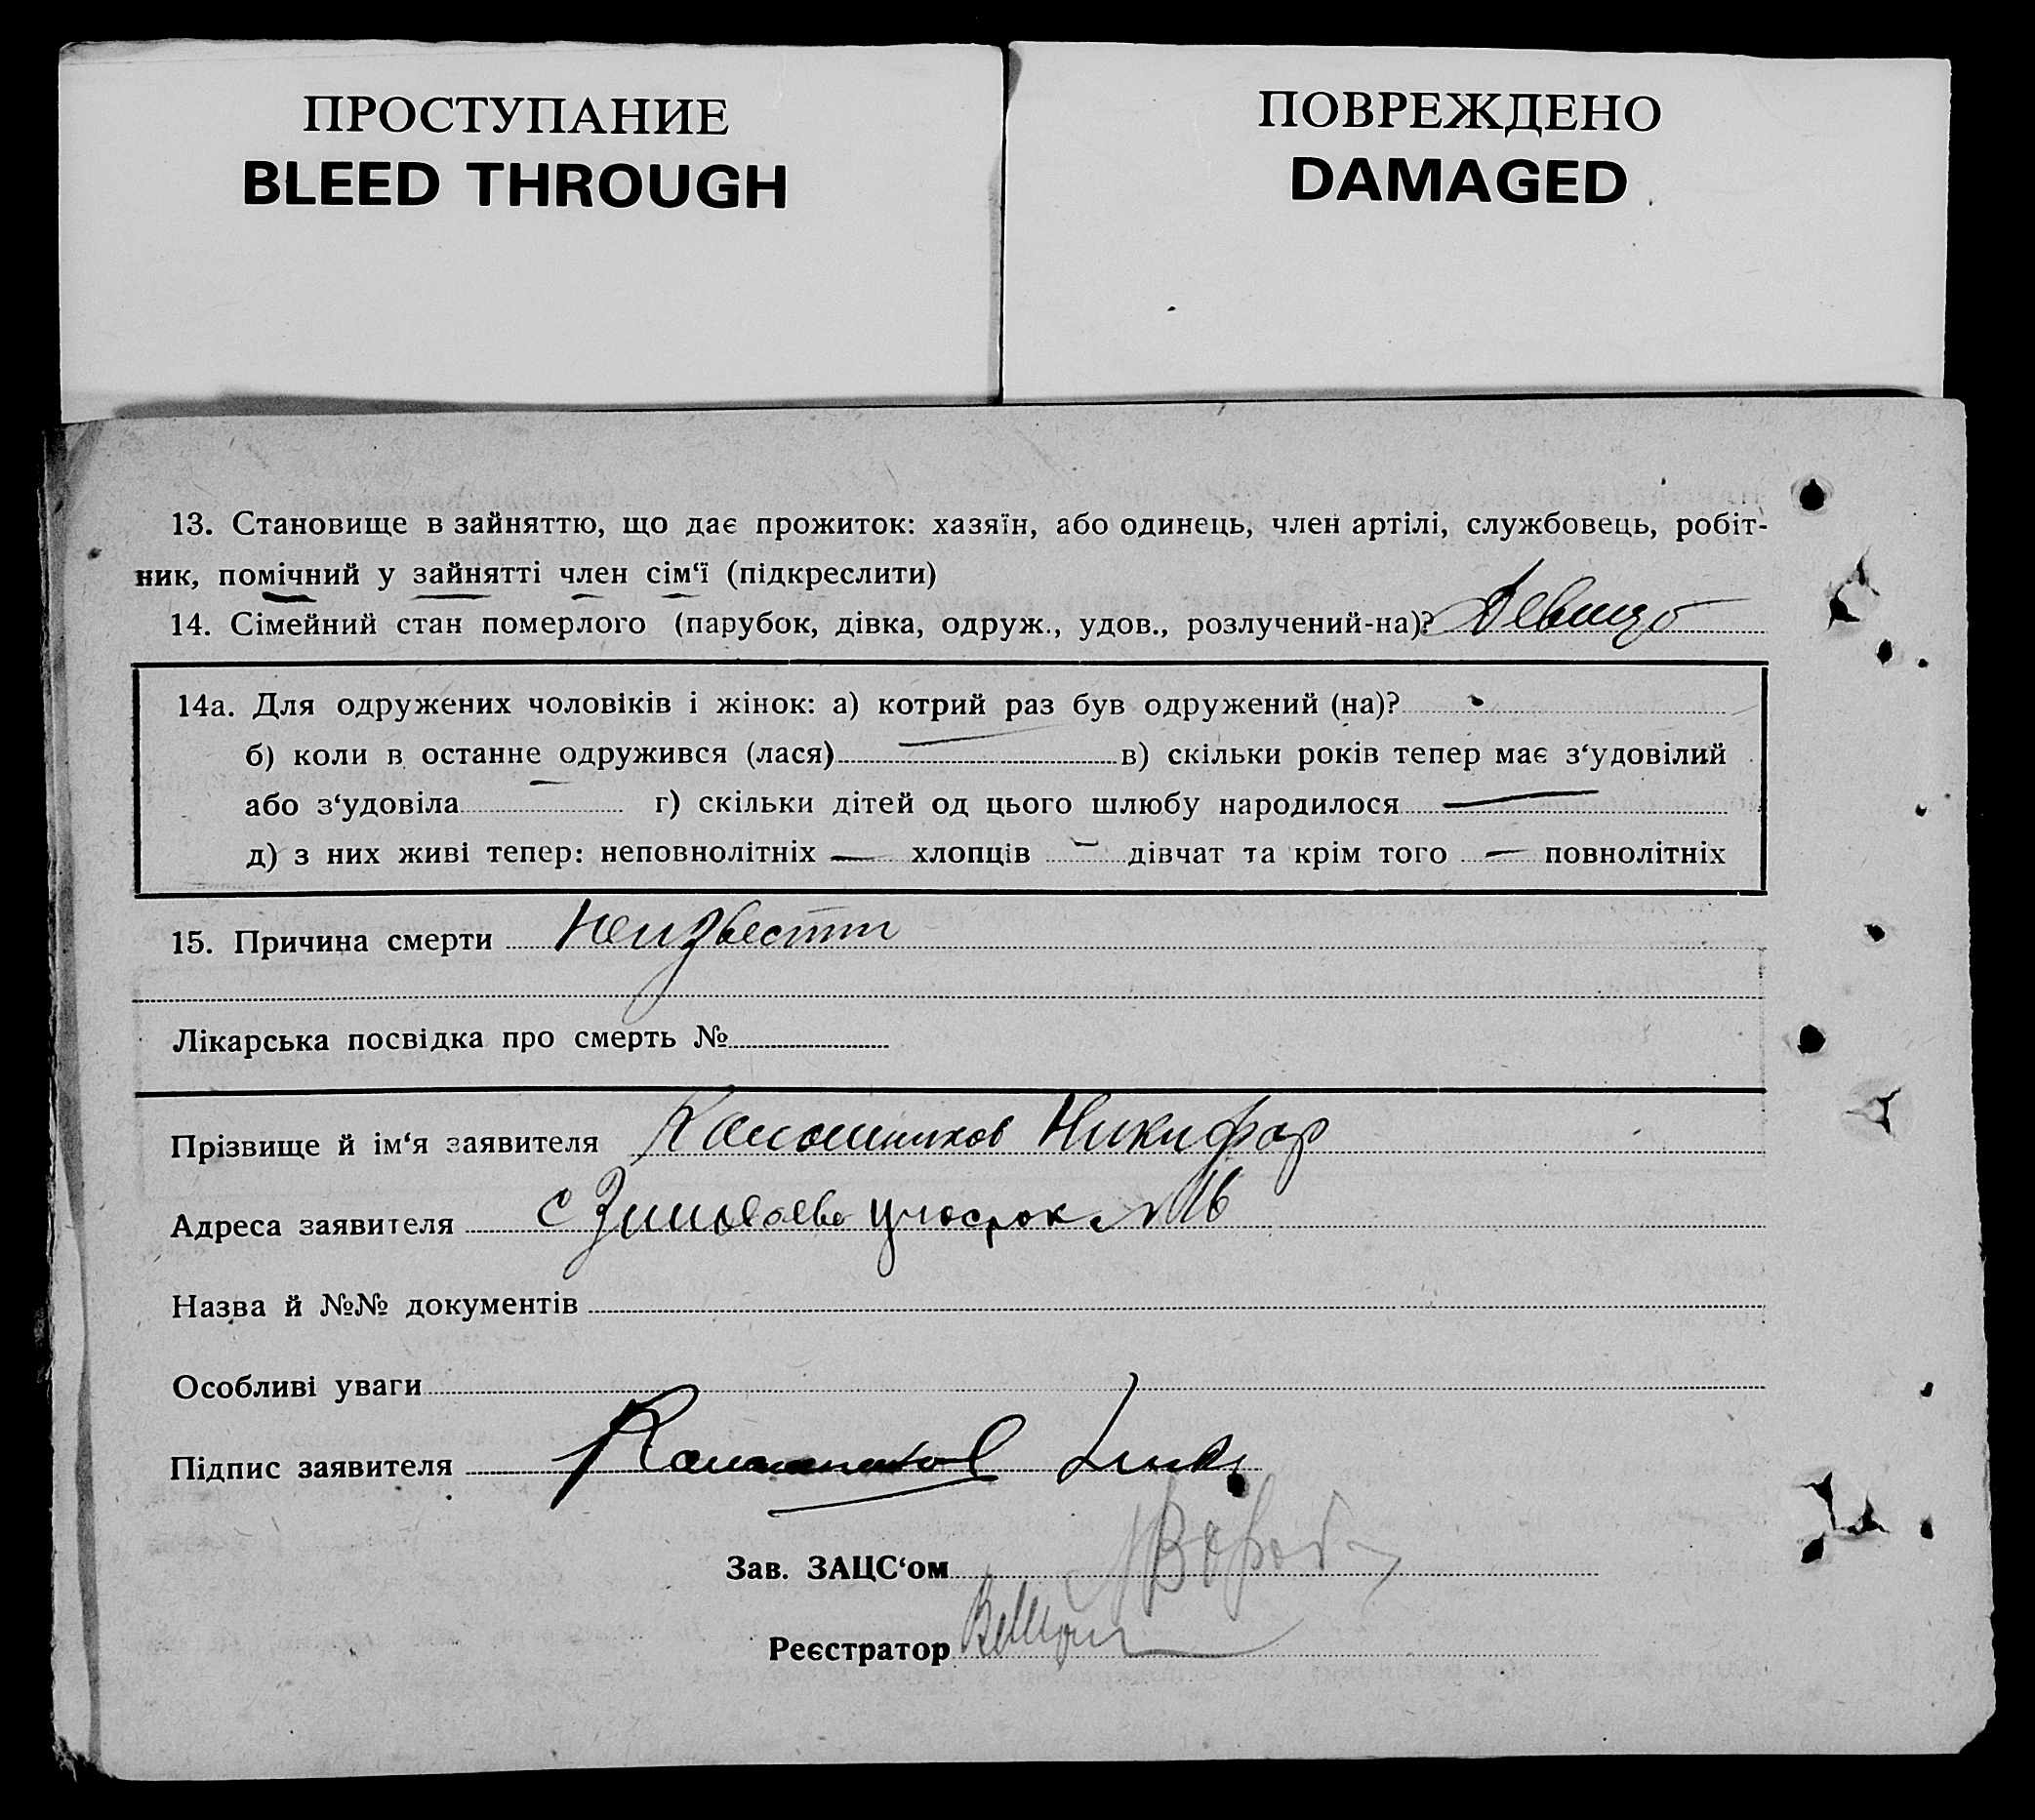 ПРОСТУПАНИЕ
BLEED THROUGH
ПОВРЕЖДЕНО
DAMAGED
13. Становище в зайняттю, що дає прожиток: хазяїн, або одинець, член артілі, службовець, робіт-
ник, помічний у зайнятті член сім‘ї (підкреслити)
14. Сімейний стан померлого (парубок, дівка, одруж., удов., розлучений-на)?
14а. Для одружених чоловіків і жінок: а) котрий раз був одружений (на)?
б) коли в останнє одружився (лася) в) скільки років тепер має з‘удовілий
або з‘удовіла г) скільки дітей од цього шлюбу народилося —
д) з них живі тепер: неповнолітніх — хлопців — дівчат та крім того — повнолітніх
15. Причина смерти Неизвестни
Лікарська посвідка про смерть №
Прізвище й ім‘я заявителя Никифор
Адреса заявителя с №16
Назва й №№ документів
Особливі уваги
Підпис заявителя
Зав. ЗАЦС‘ом
Реєстратор